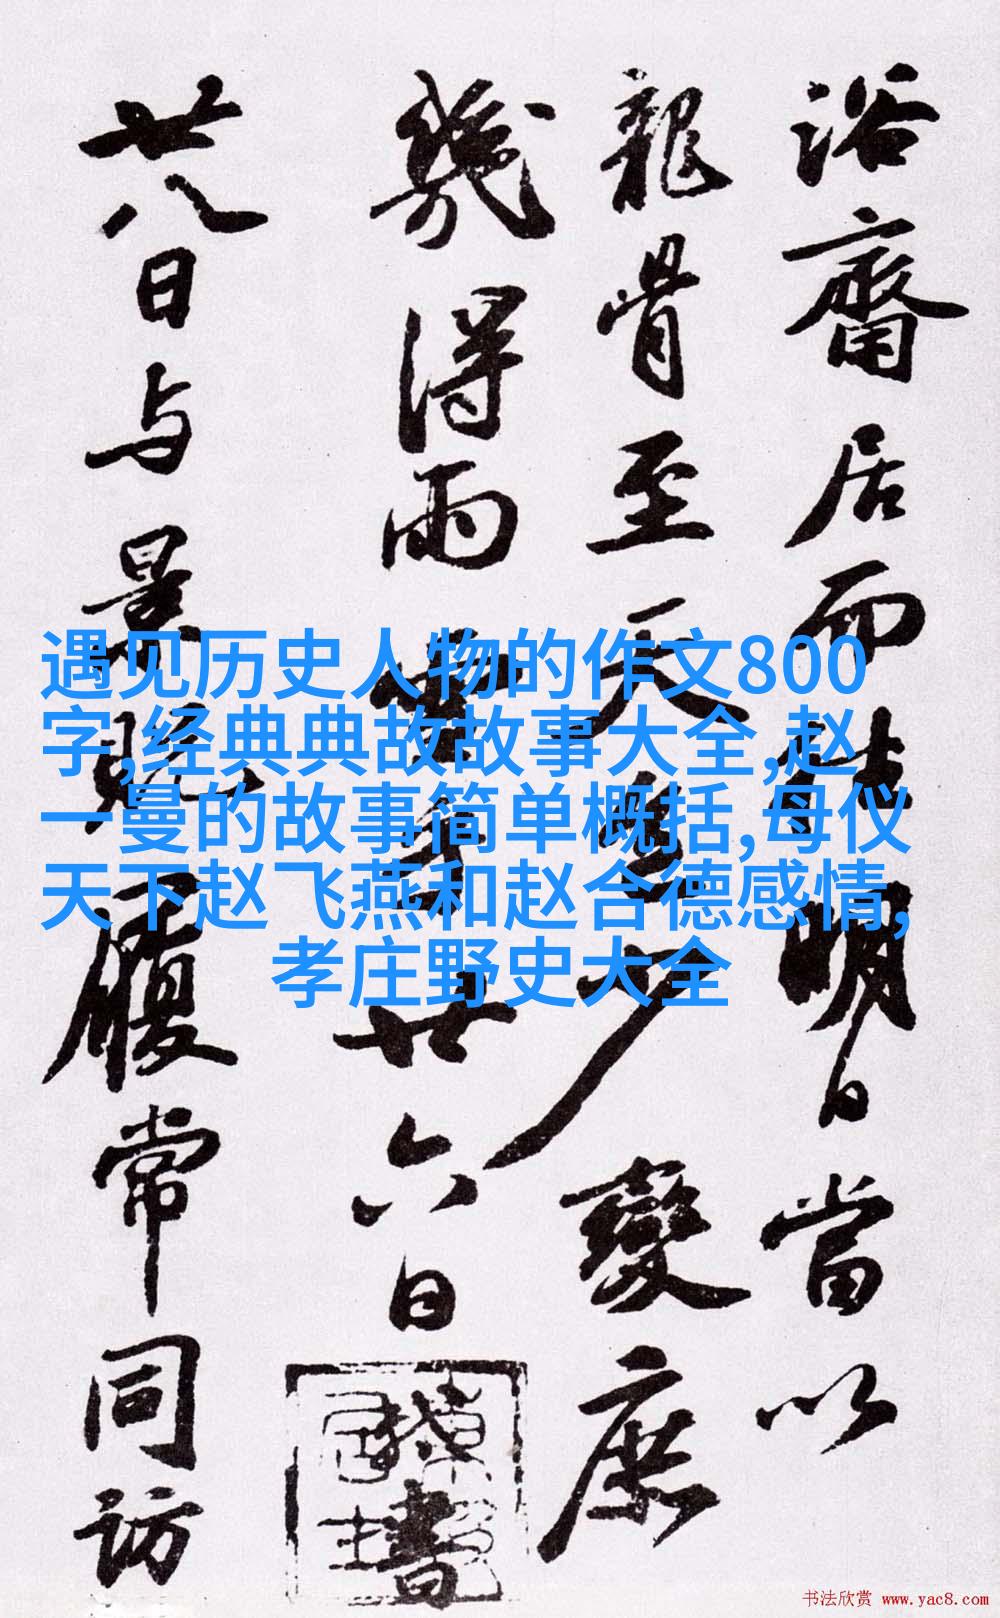 浴齋居而明日當以
龍骨至天少變庶
幾得雨廿六日書
廿八日与景貺履常同訪
遇见历史人物的作文800
字,经典典故故事大全,赵
一曼的故事简单概括,母仪
天下赵飞燕和赵合德感情,
孝庄野史大全
书法欣赏 www.yac8.com